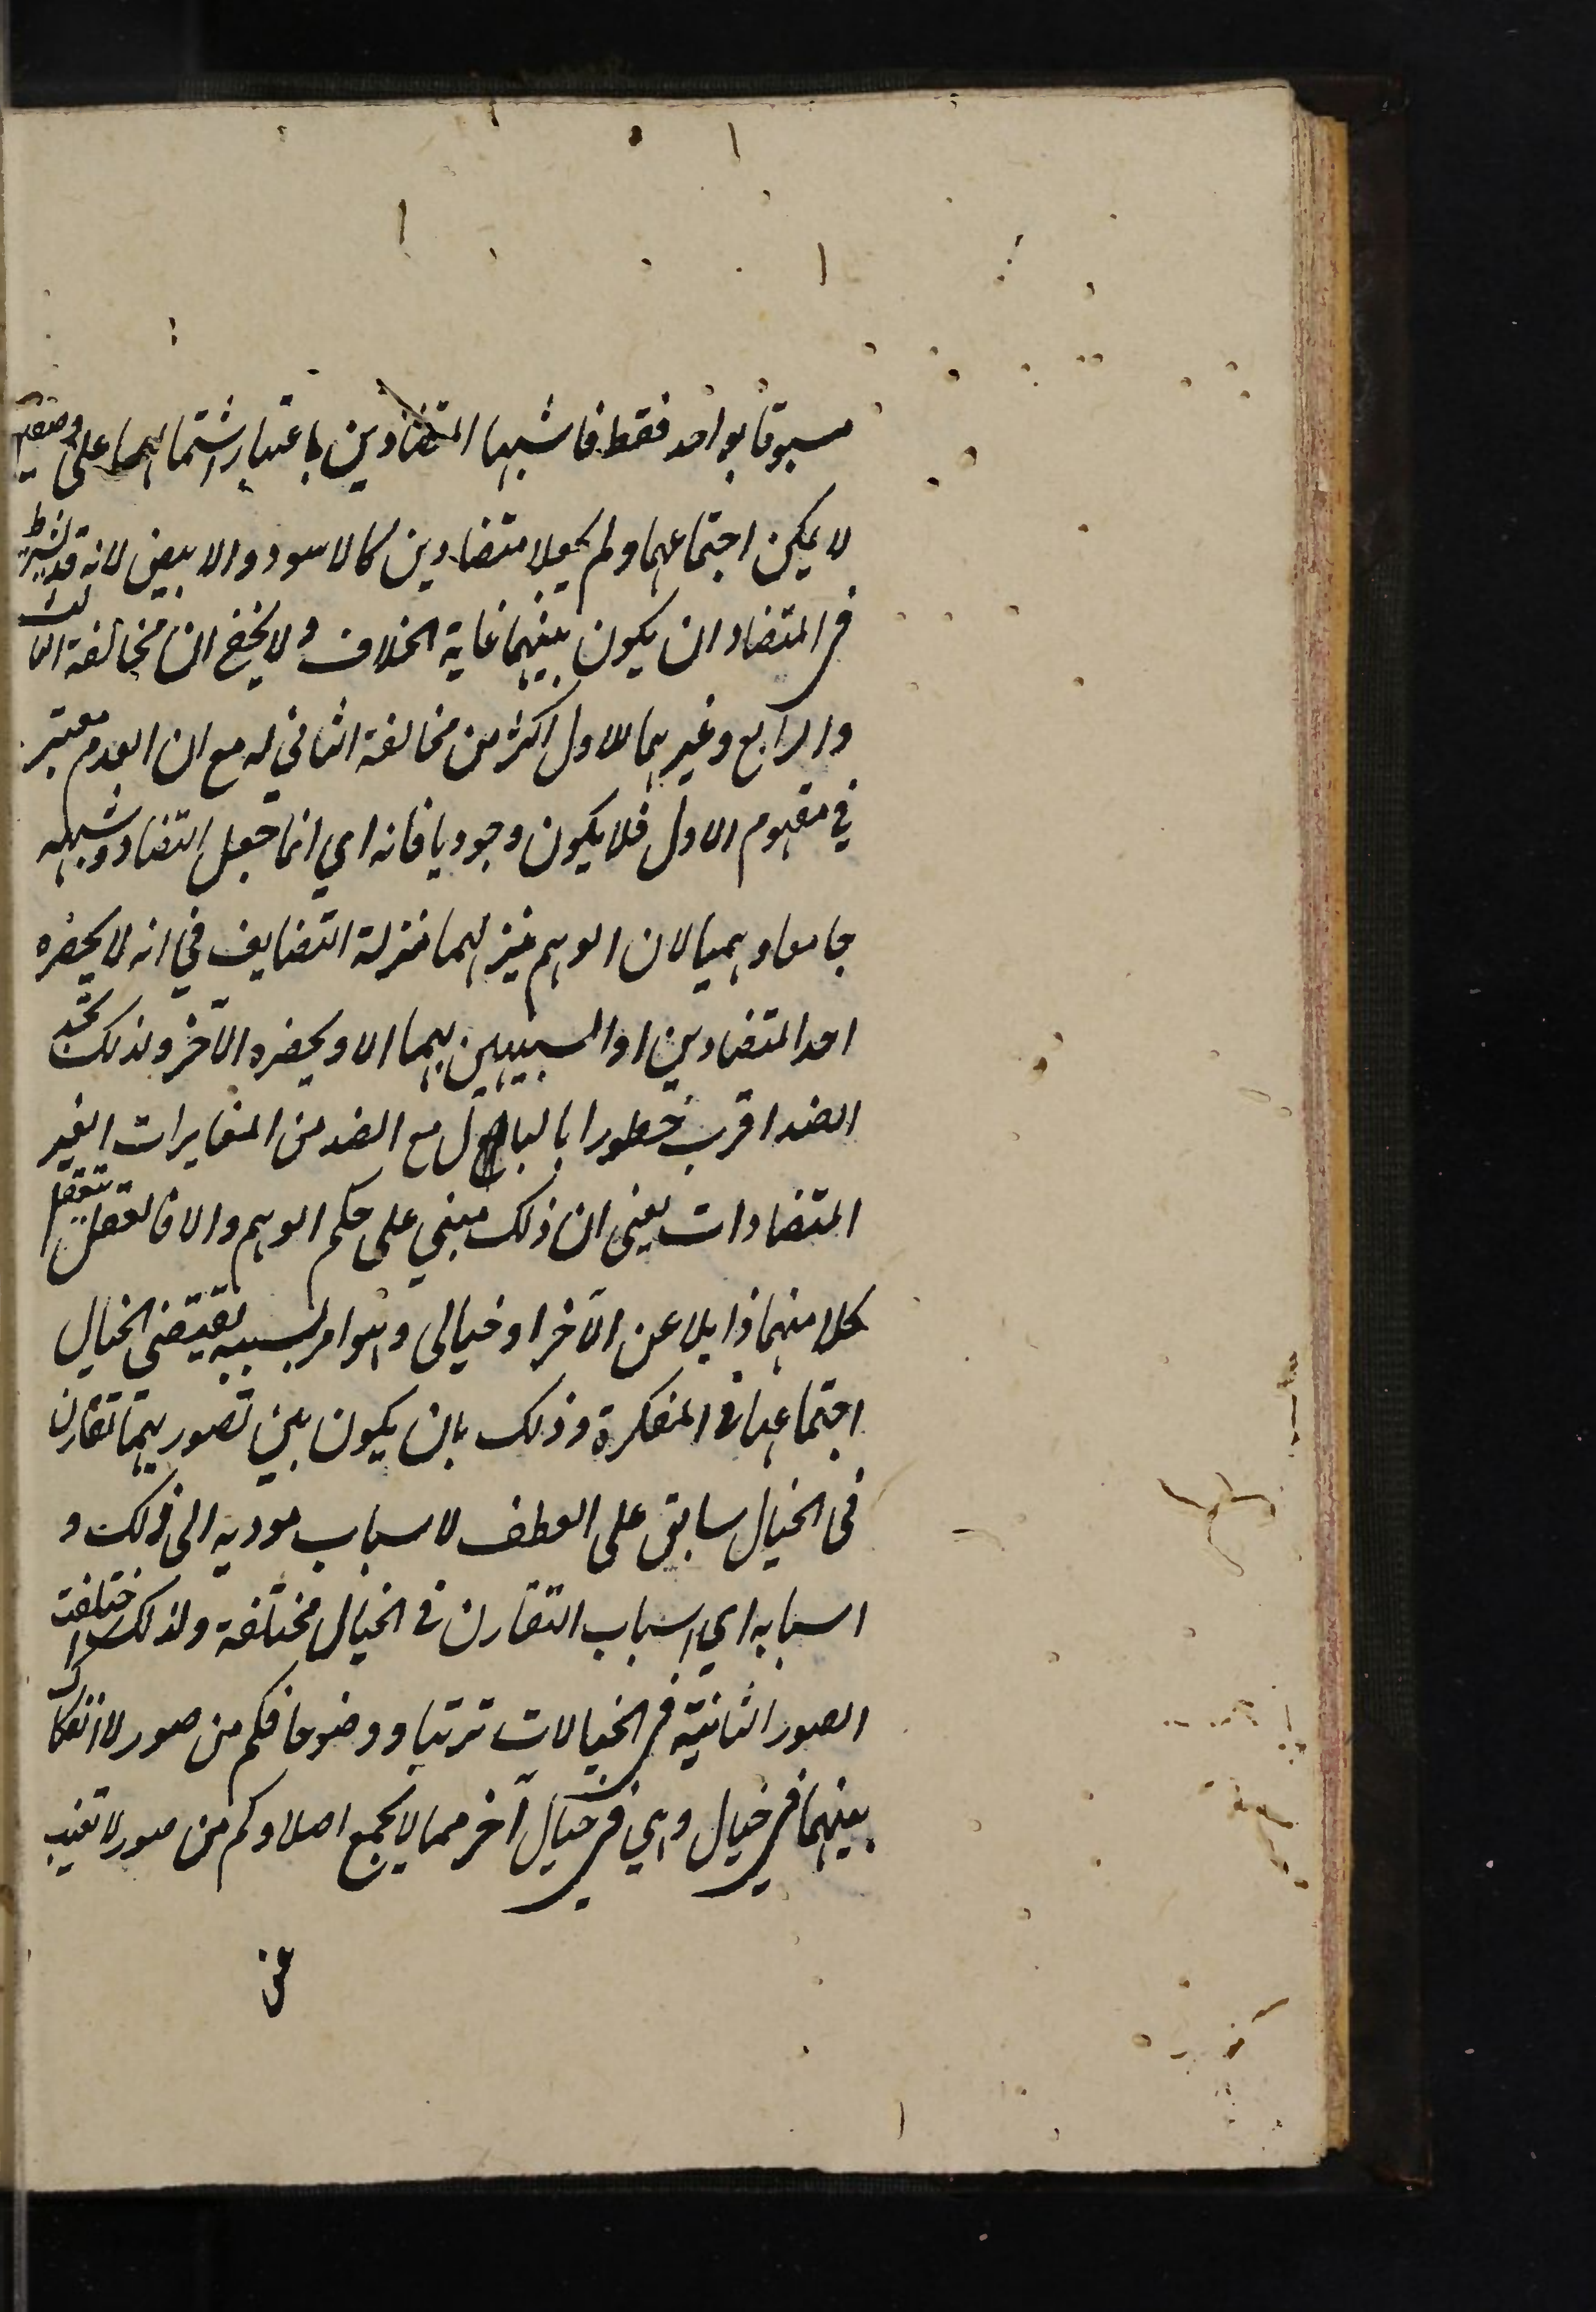 مسبوقا بواحد فقط فاشبها المتضادين باعتبار اشتمالهما على وصفين
لا يمكن اجتماعهما ولم يجعلا متضادين كالاسود والابيض لانه قد يشترط
في المتضاد ان يكون بينهما غاية الخلاف ولا يخفى ان مخالفة الثالث
والرابع وغيرهما للاول اكثر من مخالفة الثاني له مع ان العدم معتبر
في مفهوم الاول فلا يكون وجوديا فانه اي انما جعل التضاد وشبهه
جامعا وهميا لان الوهم ينزلهما منزلة التضايف في انه لا يحضره
احد المتضادين او الشبيهين بهما الا ويحضره الآخر ولذلك تجد
الضد اقرب خطورا بالبال مع الضد من المغايرات الغير
المتضادات يعنى ان ذلك مبني على حكم الوهم والا فالعقل يتعقل
كلا منهما ذاهلا عن الآخر او خيالى وهو امر بسببه يقتضى الخيال
اجتماعهما فى المفكرة وذلك بان يكون بين تصوريهما تقارن
فى الخيال سابق على العطف لاسباب مودية الى ذلك و
اسبابه اي اسباب التقارن فى الخيال مختلفة ولذلك اختلفت
الصور الثابتة في الخيالات ترتبا ووضوحا فكم من صور لا انفكاك
بينهما في خيال وهي في خيال آخر مما لا يجمع اصلا وكم من صور لا تغيب
عن